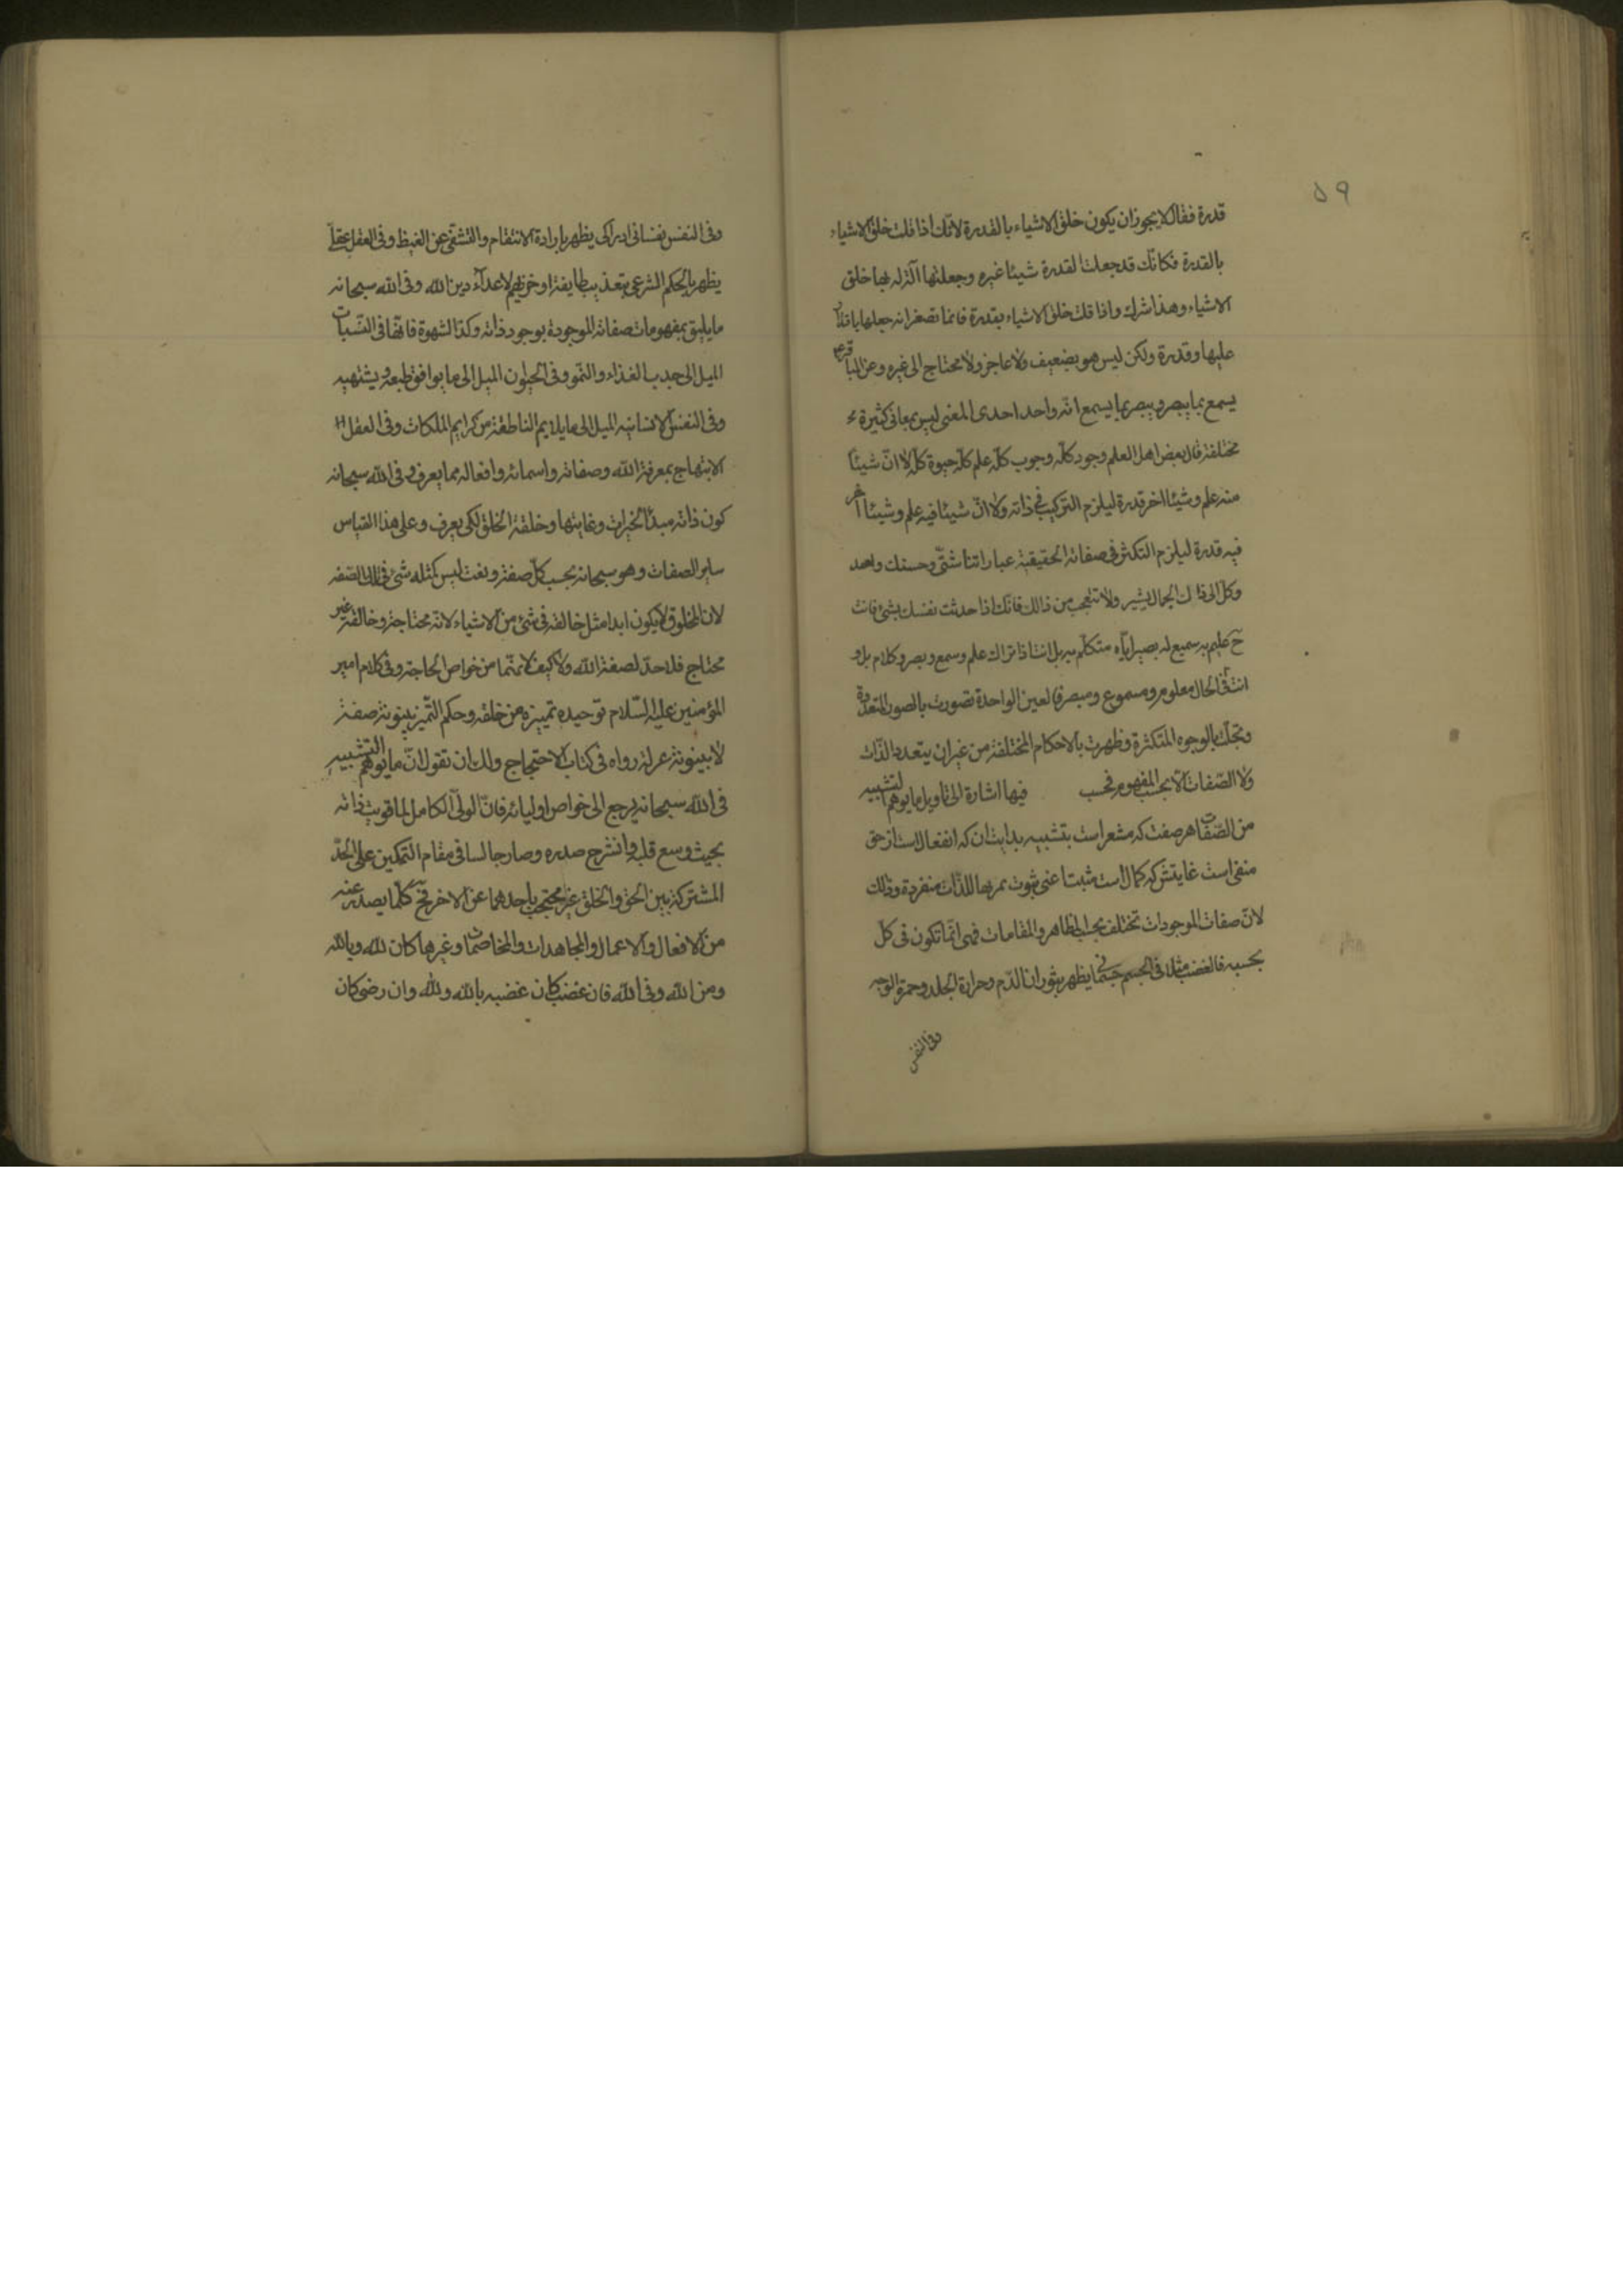 ٥٩
قدرة فقال لا يجوز ان يكون خلق الاشياء بالقدرة لانّك اذا قلت خلق الاشياء
بالقدرة فكانّك قد جعلت القدرة شيئا غيره وجعلتها آلة له بها خلق
الاشياء وهذا شرك واذا قلت خلق الاشياء بقدرة فانما تصفه انه جعلها باقتدار
عليها وقدرة ولكن ليس هو بضعيف ولا عاجز ولا محتاج الى غيره وعن الباقر ع
يسمع بما يبصر ويبصر بما يسمع انّه واحد احدى المعنى ليس بمعانى كثيرة
مختلفة قال بعض اهل العلم وجود كلّه وجوب كلّه علم كلّه حيوة كلّه لا انّ شيئا
منه علم وشيئا اخر قدرة ليلزم التركيب فى ذاته ولا انّ شيئا فيه علم وشيئا آخر
فيه قدرة ليلزم التكثر فى صفاته الحقيقية عباراتنا شتّى وحسنك واحد
وكلّ الى ذاك الجمال يشير ولا تتعجب من ذالك فانّك اذا حدثت نفسك بشئ فانت
ح عليم به سميع له بصير ايّاه متكلّم به بل انت اذا ذاك علم وسمع وبصر وكلام بل و
انت فى الحال معلوم ومسموع ومبصر فالعين الواحدة تصورت بالصور المتعدّدة
وتجلّت بالوجوه المتكثرة وظهرت بالاحكام المختلفة من غير ان يتعدد الذّات
ولا الصّفات الّا بحسب المفهوم فحسب فيها اشارة الى تاويل ما يوهم التشبيه
من الصّفات هر صفت كه مشعر است بتشبيه بدايت ان كه انفعال است از حق
منفى است غايتش كه كمال است مثبت اعنى ثبوت ثمرتها للذّات منفردة وذلك
لانّ صفات الموجودات تختلف بحسب المظاهر والمقامات فهى انّما تكون فى كلّ
بحسبه فالغضب مثلا فى الجسم جسمانى يظهر بثوران الدّم وحرارة الجلد وحمرة الوجه
وفى النفس
وفى النفس نفسانى ادراكى يظهر بارادة الانتقام والتشفى عن الغيظ وفى العقل عقلى
يظهر بالحكم الشرعى بتعذيب طايفة او حزبهم لاعداء دين الله وفى الله سبحانه
ما يليق بمفهومات صفاته الموجودة بوجود ذاته وكذا الشهوة فانّها فى النّبات
الميل الى جذب الغذاء والنّمو وفى الحيوان الميل الى ما يوافق طبعه ويشتهيه
وفى النفس الانسانيه الميل الى ما يلايم الناطقة من كرايم الملكات وفى العقل
الابتهاج بمعرفة الله وصفاته واسمائه وافعاله مما يعرف وفى الله سبحانه
كون ذاته مبدئا الخيرات وغايتها وخلقه الخلق لكى يعرف وعلى هذا القياس
ساير الصفات وهو سبحانه بحسب كلّ صفة ونعت ليس كمثله شئ فى تلك الصّفه
لان المخلوق لا يكون ابدا مثل خالقه فى شئ من الاشياء لانّه محتاج وخالقه غير
محتاج فلا حدّ لصفة الله ولا كيف لانّهما من خواص الحاجة وفى كلام امير
المؤمنين عليه السّلام توحيده تمييزه من خلقه وحكم التّميز بينونة صفة
لا بينونة عزلة رواه فى كتاب الاحتجاج ولك ان تقول انّ ما يوهم التشبيه
فى الله سبحانه يرجع الى خواص اوليائه فانّ الولى الكامل لما قويت ذاته
بحيث وسع قلبه وانشرح صدره وصار جالسا فى مقام التمكين على الحدّ
المشترك بين الحق والخلق غير محتجب باحدهما عن الاخر فح كلّما يصدر عنه
من الافعال والاعمال والمجاهدات والمخاصمات وغيرها كان لله وبالله
ومن الله وفى الله فان غضب كان غضبه بالله ولله وان رضى كان